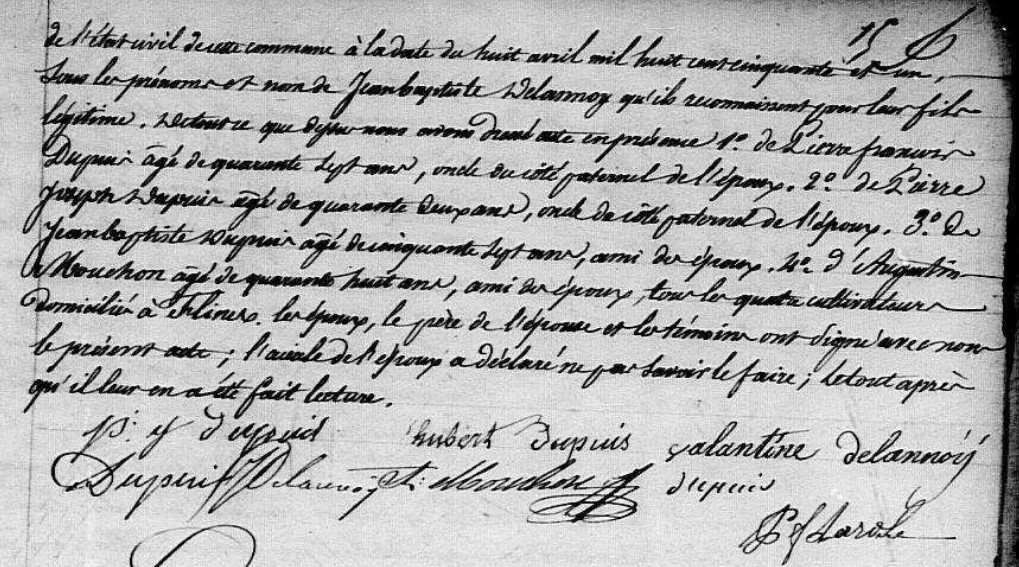 15
de l'état civil de cette commune à la date du huit avril mil huit cent cinquante et un,
sous les prénoms et nom de Jean baptiste Delannoy qu'ils reconnaissent pour leur fils
légitime. De tout ce que dessus nous avons dressé acte en présence 1o. de Pierre françois
Dupuis âgé de quarante sept ans, oncle du côté paternel de l'époux. 2o. de Pierre
Joseph Dupuis âgé de quarante deux ans, oncle du côté paternel de l'époux. 3o. de
Jean baptiste Dupuis âgé de cinquante sept ans, ami des époux. 4o. d'Augustin
Mouchon âgé de quarante huit ans, ami des époux, tous les quatre cultivateurs
domiciliés à Flines. les époux, le père de l'épouse et les témoins ont signé avec nous
le présent acte; l'aieule de l'époux a déclaré ne pas savoir le faire; le tout après
qu'il leur en a été fait lecture.
p. j dupuis hubert Dupuis valantine delannoy
Dupuis Delannoy Mouchon dupuis